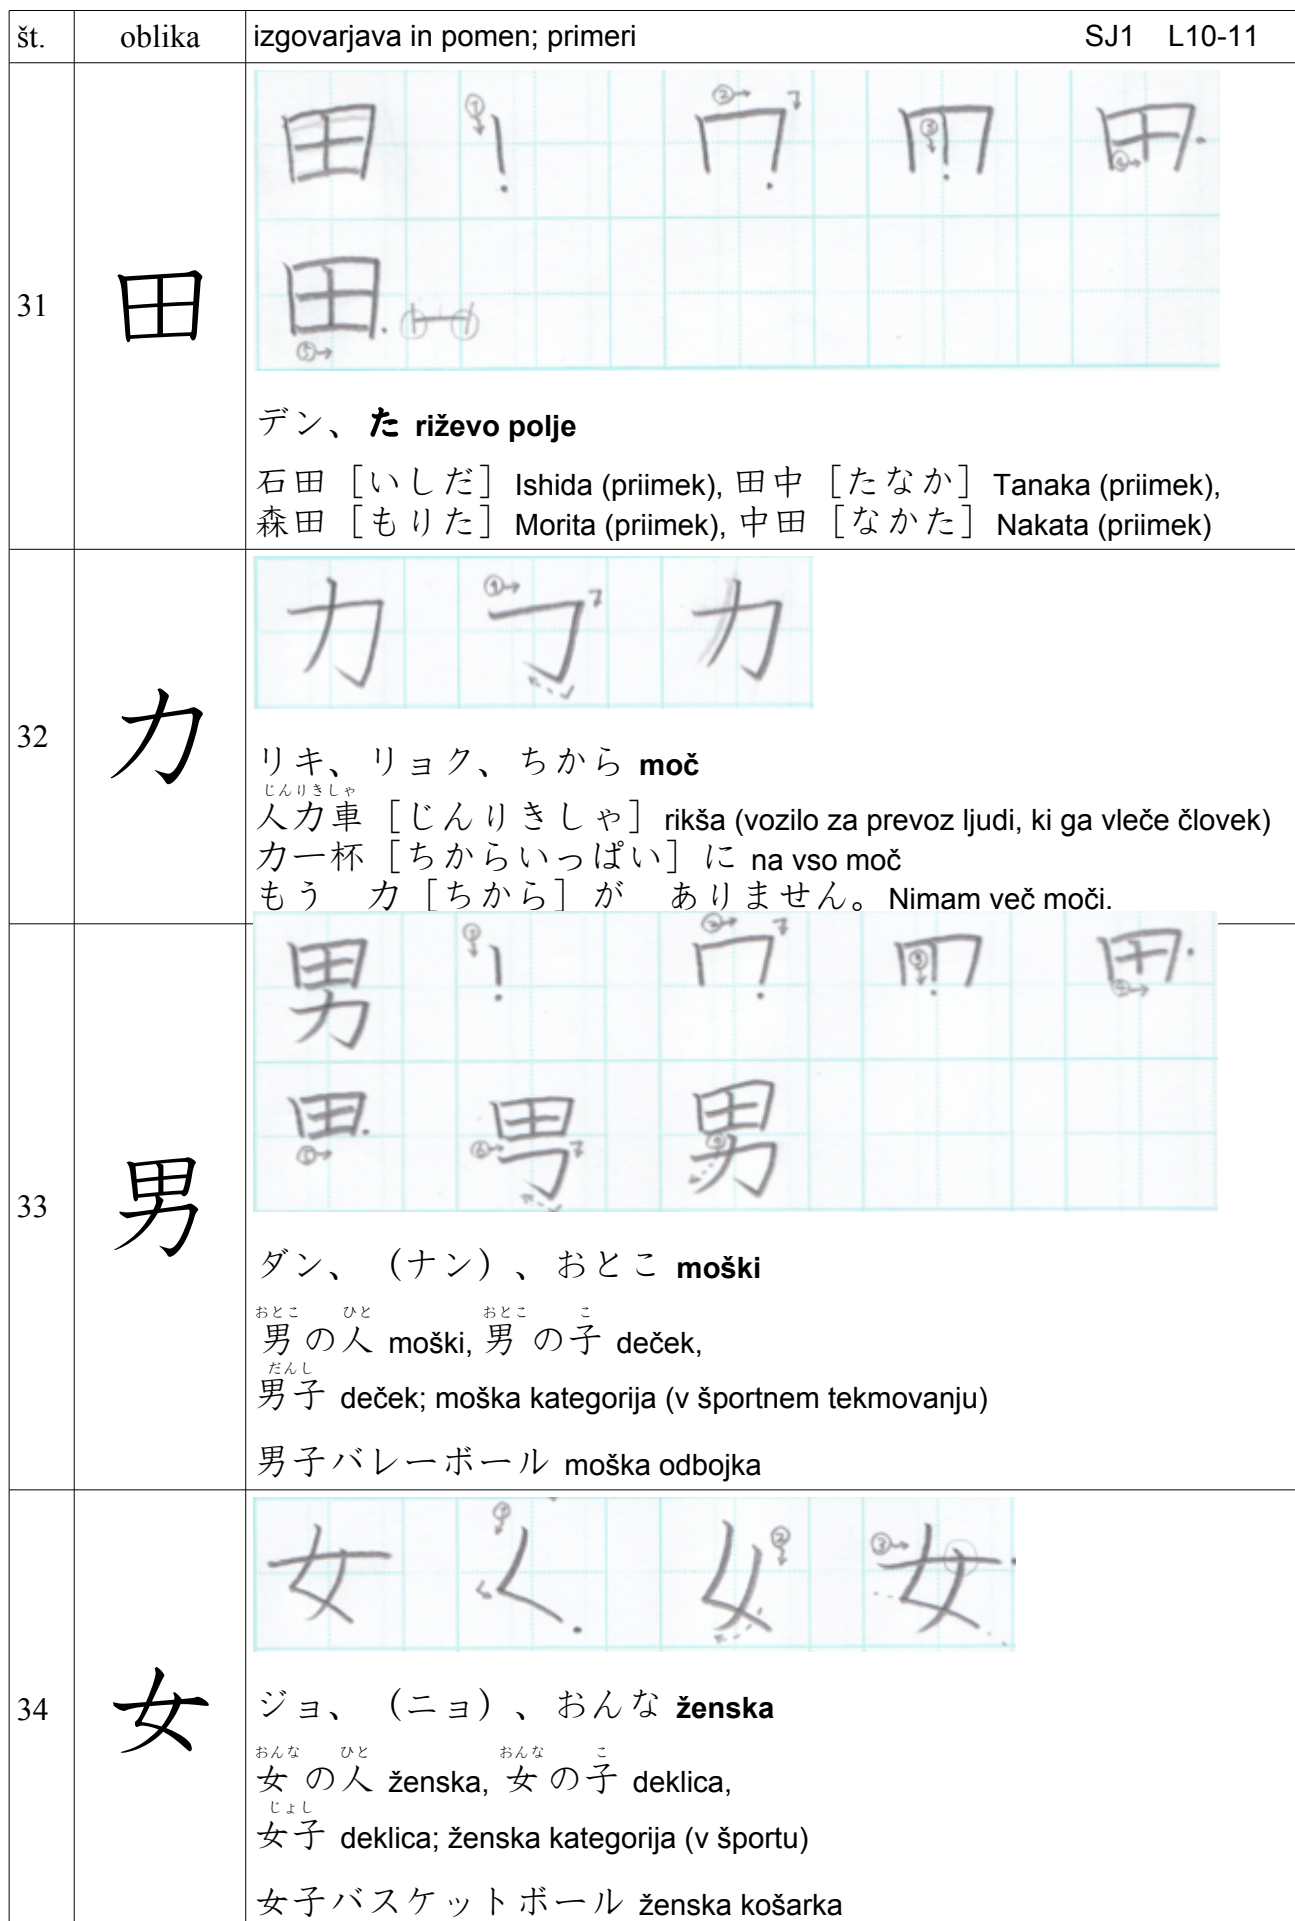 št. oblika izgovarjava in pomen; primeri SJ1 L10-11
31 田
田 ① ② ③ ④
田 ⑤
デン、た riževo polje
石田［いしだ］Ishida (priimek), 田中［たなか］Tanaka (priimek),
森田［もりた］Morita (priimek), 中田［なかた］Nakata (priimek)
32 力
力 ① 力
リキ、リョク、ちから moč
じんりきしゃ
人力車［じんりきしゃ］rikša (vozilo za prevoz ljudi, ki ga vleče človek)
力一杯［ちからいっぱい］に na vso moč
もう　力［ちから］が　ありません。Nimam več moči.
33 男
男 ① ② ③ ④
⑤ ⑥ 男 ⑦
ダン、（ナン）、おとこ moški
おとこ ひと おとこ こ
男の人 moški, 男の子 deček,
だんし
男子 deček; moška kategorija (v športnem tekmovanju)
男子バレーボール moška odbojka
34 女
女 ① ② ③ 女
ジョ、（ニョ）、おんな ženska
おんな ひと おんな こ
女の人 ženska, 女の子 deklica,
じょし
女子 deklica; ženska kategorija (v športu)
女子バスケットボール ženska košarka